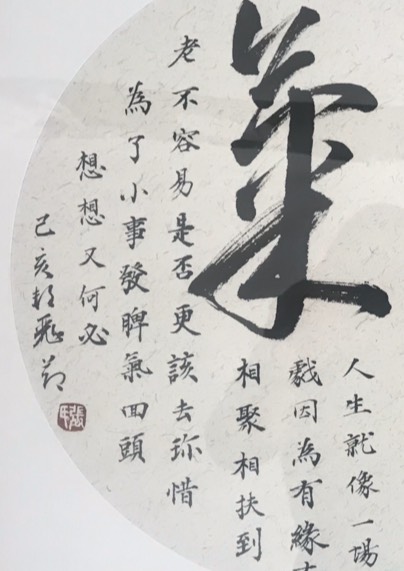 氣
人生就像一場
戲因為有緣
相聚相扶到
老不容易是否更該去珎惜
為了小事發脾氣回頭
想想又何必
己亥